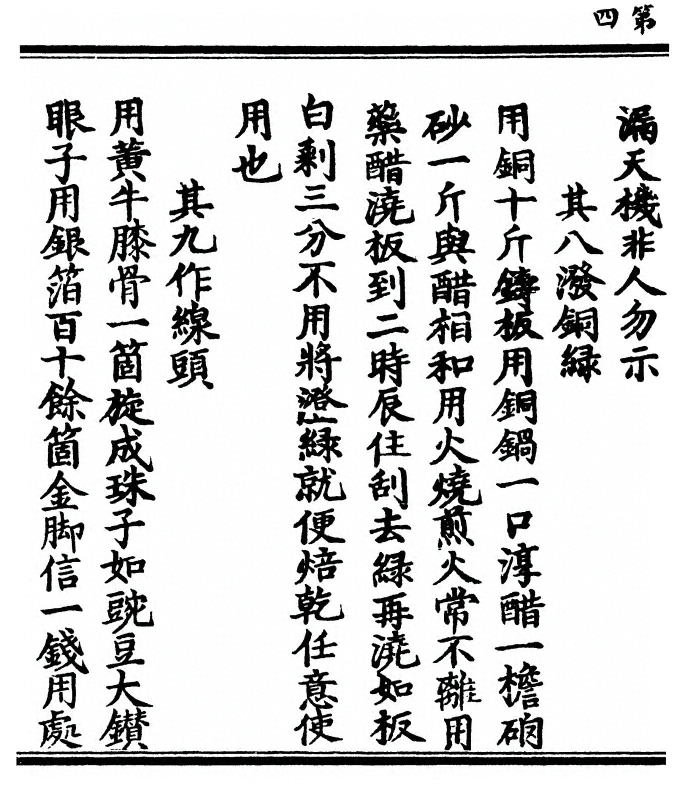 第四
漏天機非人勿示
其八潑銅緑
用銅十斤鑄板用銅鍋一口淳醋一檐硇
砂一斤與醋相和用火燒煎火常不離用
藥醋澆板到二時辰住刮去緑再澆如板
白剩三分不用將澄緑就便焙乾任意使
用也
其九作線頭
用黃牛膝骨一箇旋成珠子如豌豆大鑚
眼子用銀箔百十餘箇金脚信一錢用處